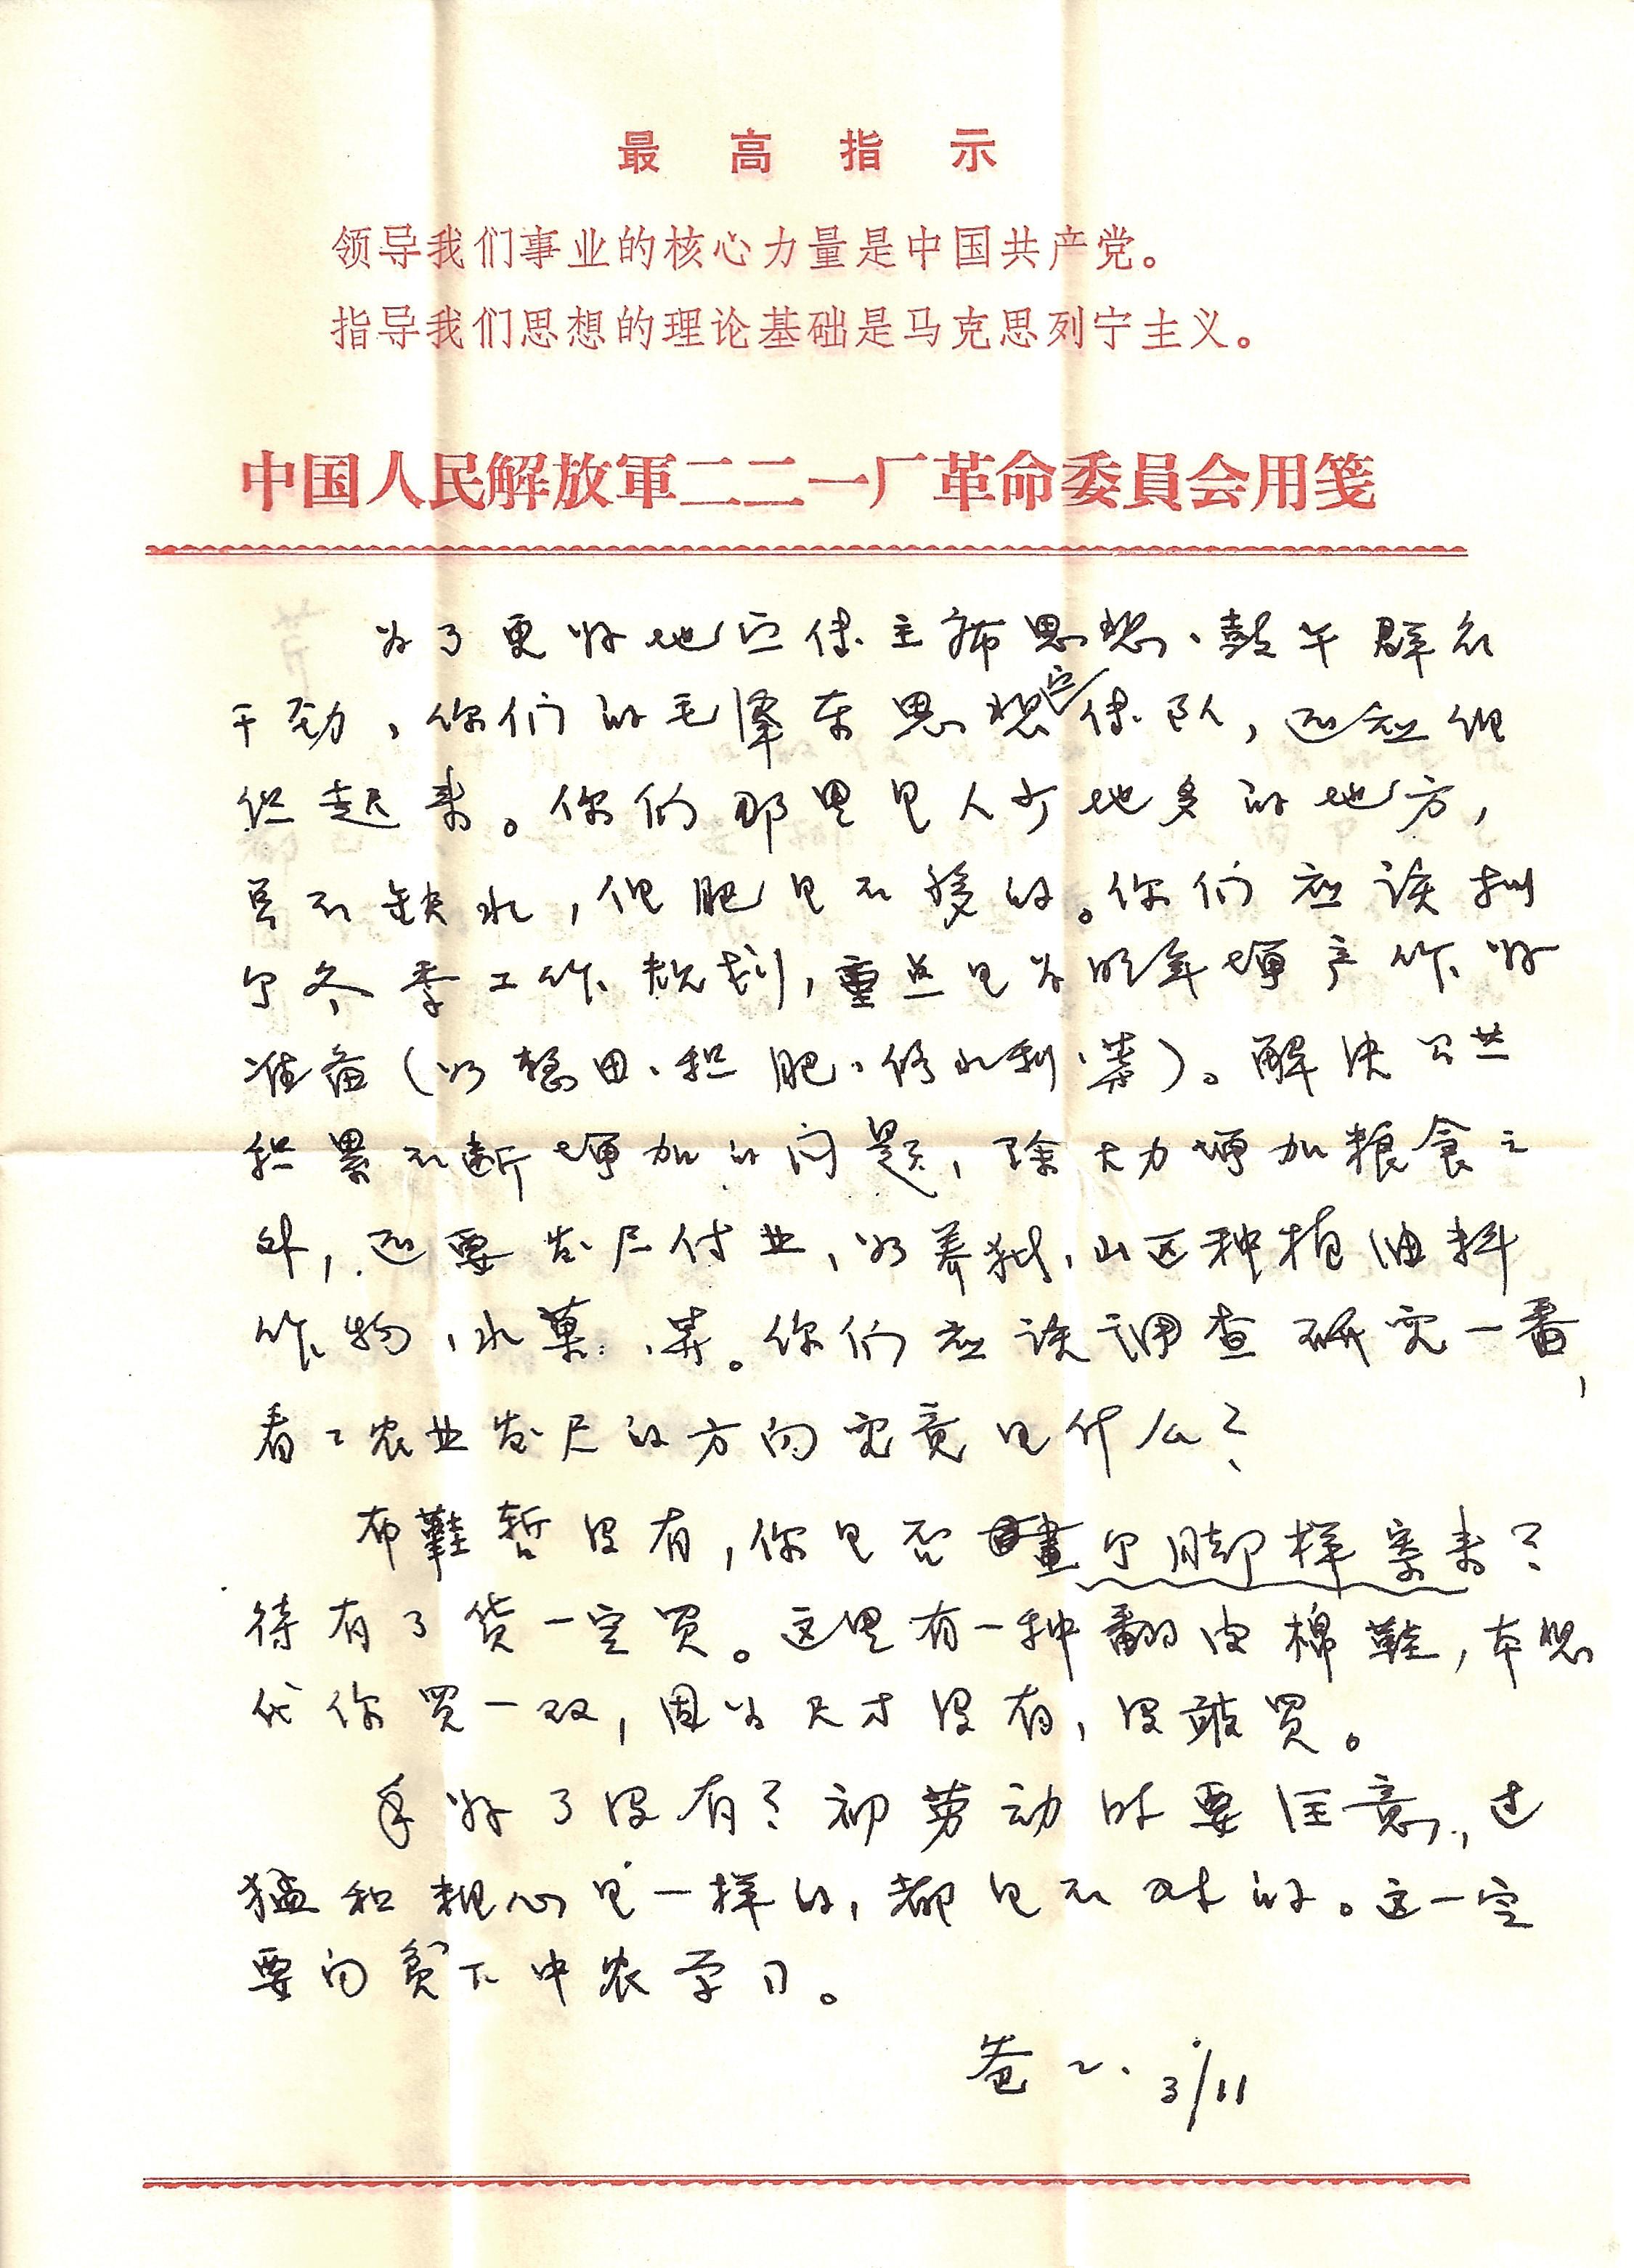 最高指示
领导我们事业的核心力量是中国共产党。
指导我们思想的理论基础是马克思列宁主义。
中国人民解放軍二二一厂革命委員会用笺
为了更好地宣传主席思想、鼓午群众
干劲，你们的毛泽东思想宣传队，还应组
织起来。你们那里是人少地多的地方，
且不缺水，但肥是不够的。你们应该拟
个冬季工作规划，重点是为明年增产作好
准备（如整田、积肥、修水利、等）。解决公共
积累不断增加的问题，除大力增加粮食之
外，还要发尸付业，如养猪，山区种植油料
作物，水菓、等。你们应该调查研究一番，
看々农业发尸的方向究竟是什么？
布鞋暂没有，你是否畫个脚样寄来？
待有了货一定买。这里有一种翻皮棉鞋，本想
代你买一双，因为尺寸没有，没敢买。
手好了没有？初劳动时要注意，过
猛和粗心是一样的，都是不对的。这一定
要向贫下中农学习。
爸々. 3/11